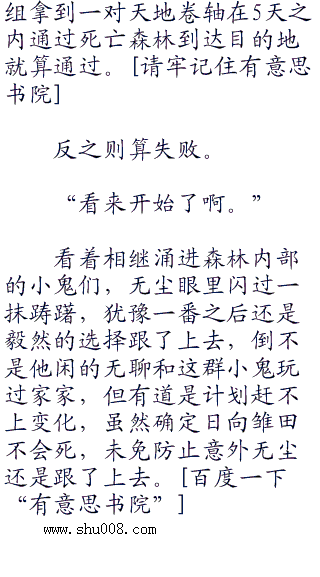 组拿到一对天地卷轴在5天之
内通过死亡森林到达目的地
就算通过。[请牢记住有意思
书院]
反之则算失败。
“看来开始了啊。”
看着相继涌进森林内部
的小鬼们，无尘眼里闪过一
抹踌躇，犹豫一番之后还是
毅然的选择跟了上去，倒不
是他闲的无聊和这群小鬼玩
过家家，但有道是计划赶不
上变化，虽然确定日向雏田
不会死，未免防止意外无尘
还是跟了上去。[百度一下
“有意思书院”]
www.shu008.com